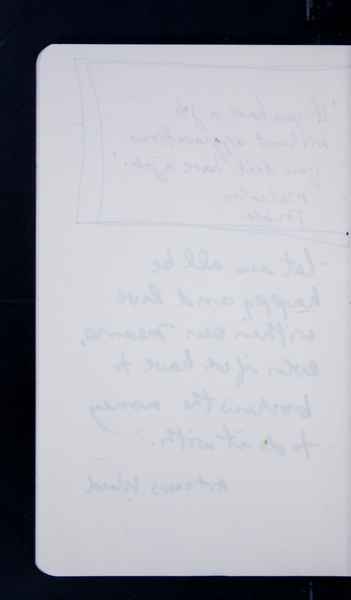 "if you have a job
without aggravations,
you don't have a job."
Malcolm
Forbes
"Let us all be
happy and live
within our means,
even if we have to
borrow the money
to do it with.
Artemus Ward